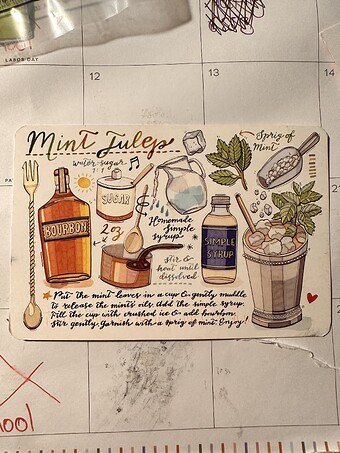 LABOR DAY
12
13
14
Mint Julep
water + sugar
1 : 1
Sprig of
Mint
SUGAR
BOURBON
2oz
Homemade
Simple
syrup
SIMPLE
SYRUP
Stir &
heat until
dissolved
Put the mint leaves in a cup & gently muddle
to release the mint's oils. Add the simple syrup.
Fill the cup with crushed ice & add bourbon.
Stir gently. Garnish with a sprig of mint. Enjoy!